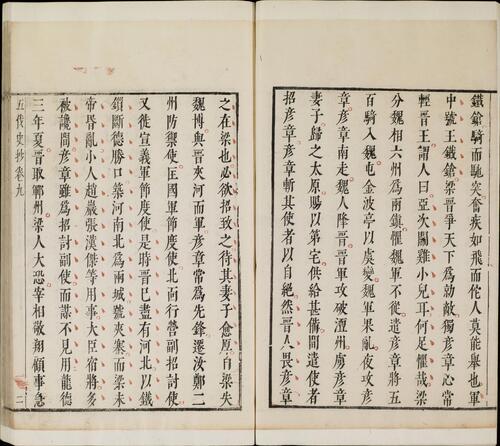 鐵鎗騎而馳突奮疾如飛而佗人莫能舉也軍
中號王鐵鎗梁晉爭天下爲勍敵獨彥章心常
輕晉王謂人曰亞次鬬雞小兒耳何足懼哉梁
分魏相六州爲兩鎮懼魏軍不從遣彥章將五
百騎入魏屯金波亭以虞變魏軍果亂夜攻彥
章彥章南走魏人降晉晉軍攻破澶州虜彥章
妻子歸之太原賜以第宅供給甚備間遣使者
招彥章彥章斬其使者以自絕然晉人畏彥章
之在梁也必欲招致之待其妻子愈厚自梁失
魏博與晉夾河而軍彥章常爲先鋒遷汝鄭二
州防禦使匡國軍節度使北面行營副招討使
又徙宣義軍節度使是時晉已盡有河北以鐵
鎖斷德勝口築河南北爲兩城號夾寨而梁末
帝昏亂小人趙巖張漢傑等用事大臣宿將多
被讒間彥章雖爲招討副使而謀不見用龍德
三年夏晉取鄆州梁人大恐宰相敬翔顧事急
五代史抄卷九
二